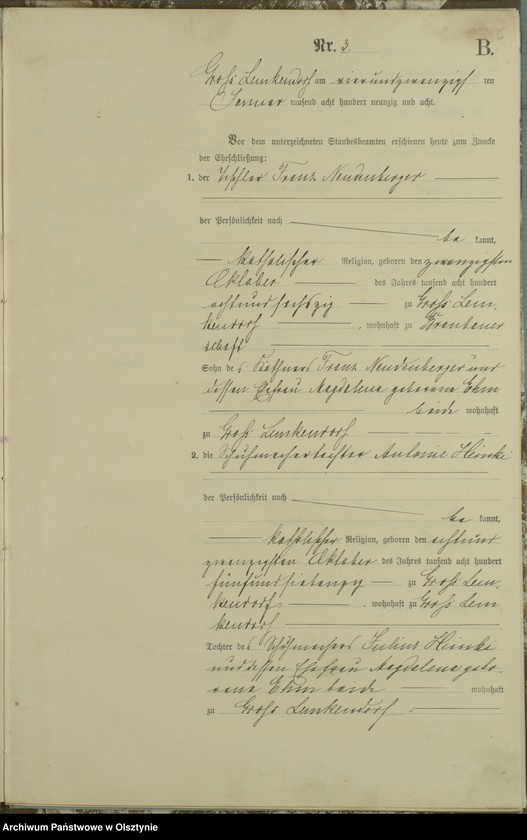 Nr. 3.
B.
Groß Lemkendorf am vierundzwanzigsten
Januar tausend acht hundert neunzig und acht.
Vor dem unterzeichneten Standesbeamten erschienen heute zum Zwecke
der Eheschließung:
1. der Tischler Franz Neudenberger
der Persönlichkeit nach
be kannt,
katholischer Religion, geboren den zwanzigsten
Oktober des Jahres tausend acht hundert
achtundsechszig zu Groß Lem-
kendorf, wohnhaft zu
schaft
Sohn des Käthners Franz Neudenberger und
dessen Ehefrau Magdalena geborene Ehm
beide wohnhaft
zu Groß Lemkendorf
2. die Schuhmachertochter Antonie Hinzki
der Persönlichkeit nach
be kannt,
katholischer Religion, geboren den achtund
zwanzigsten Oktober des Jahres tausend acht hundert
fünfundsiebenzig zu Groß Lem-
kendorf, wohnhaft zu Groß Lem
kendorf
Tochter des Schuhmachers Julius Hinzki
und dessen Ehefrau Magdalena gebo-
rene Ehm beide wohnhaft
zu Groß Lemkendorf
Archiwum Państwowe w Olsztynie